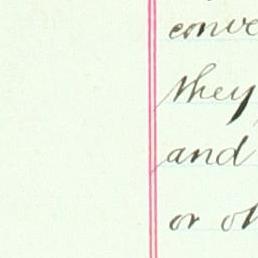 conve
they
and
or oh